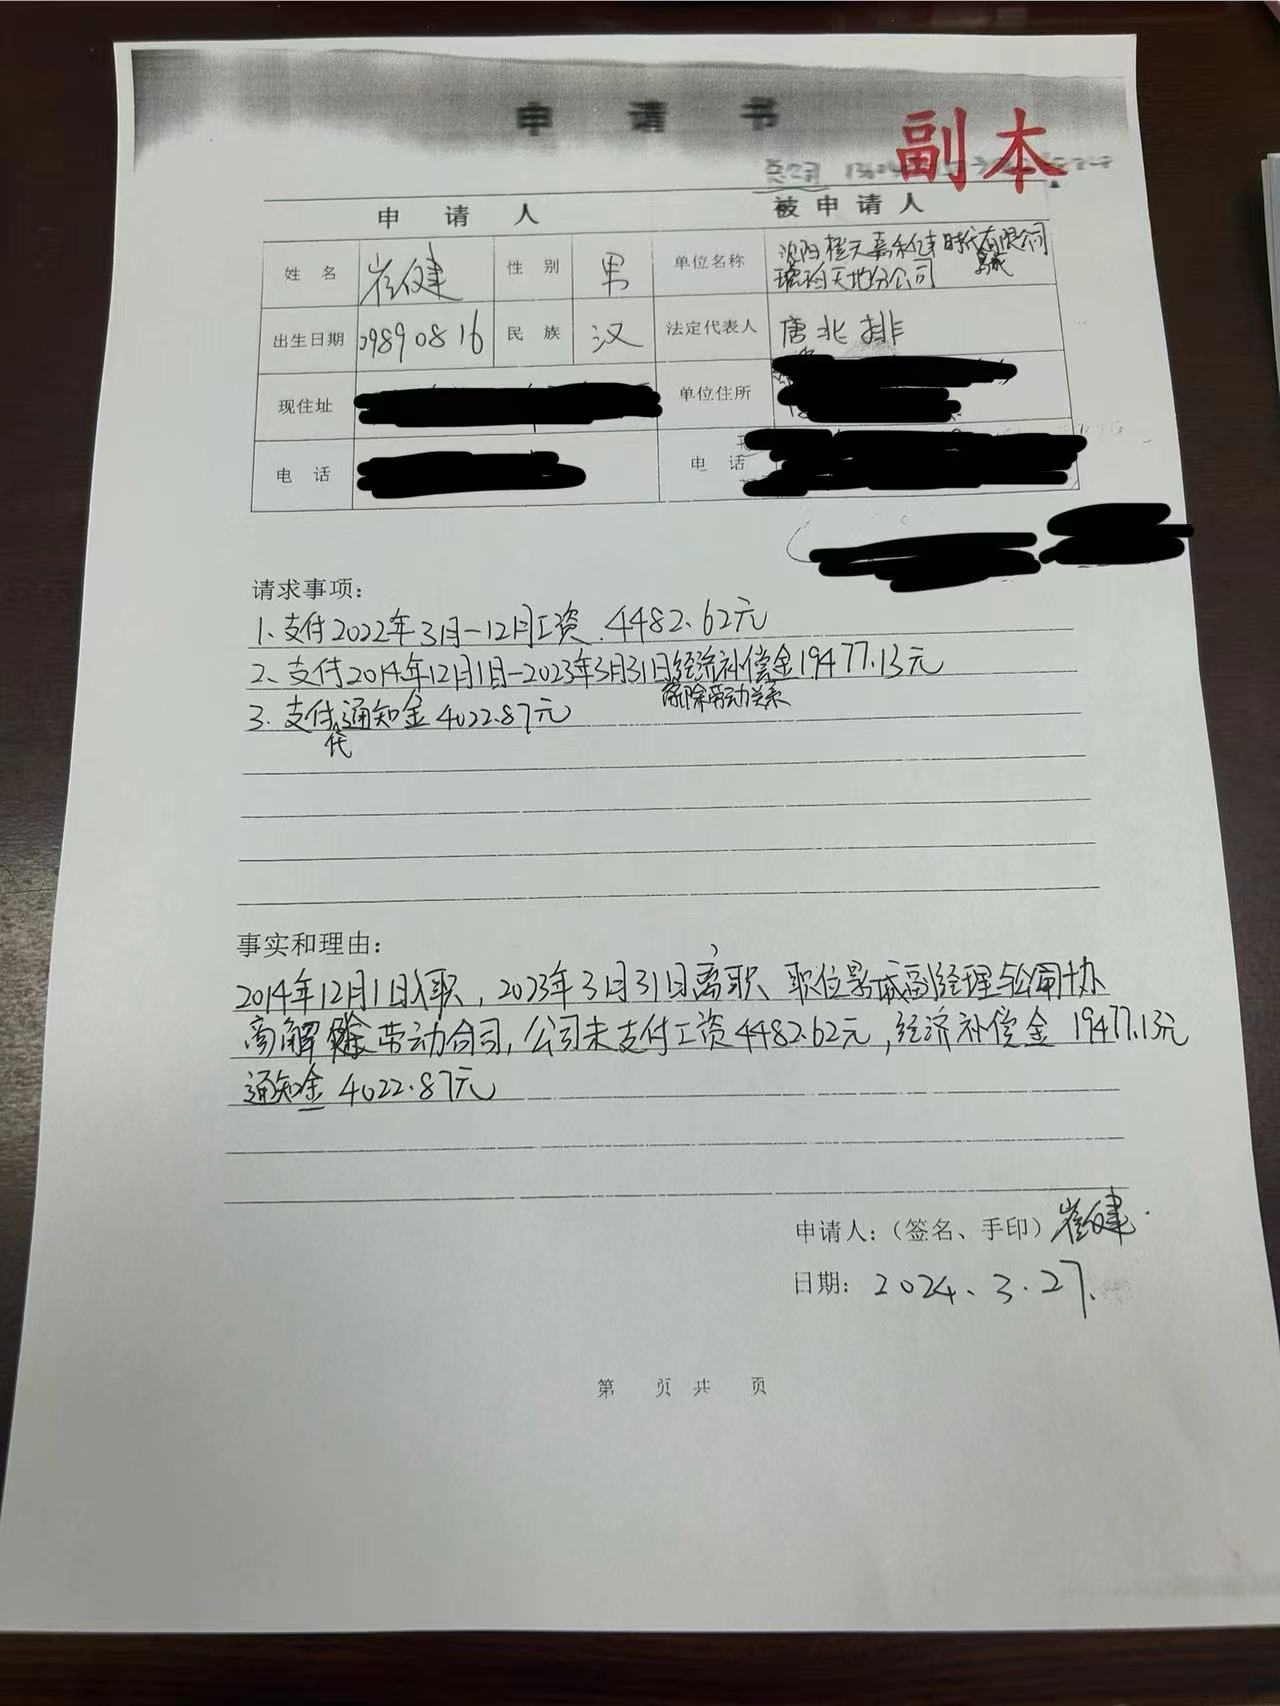 申请书
副本
总公司
申请人 被申请人
姓名 崔健 性别 男 单位名称 沈阳 天嘉禾 时代 有限公司
影城
天地分公司
出生日期 19890816 民族 汉 法定代表人 唐北排
现住址 单位住所
电话 电话
请求事项:
1、支付2022年3月-12月工资.4482.62元
2、支付2014年12月1日-2023年3月31日经济补偿金19477.13元
解除劳动关系
3.支付通知金4022.87元
代
事实和理由:
2014年12月1日入职,2023年3月31日离职、职位影城副经理与公司协
商解除劳动合同,公司未支付工资4482.62元,经济补偿金19477.13元
通知金4022.87元
申请人:(签名、手印)崔健
日期: 2024、3.27.
第 页 共 页